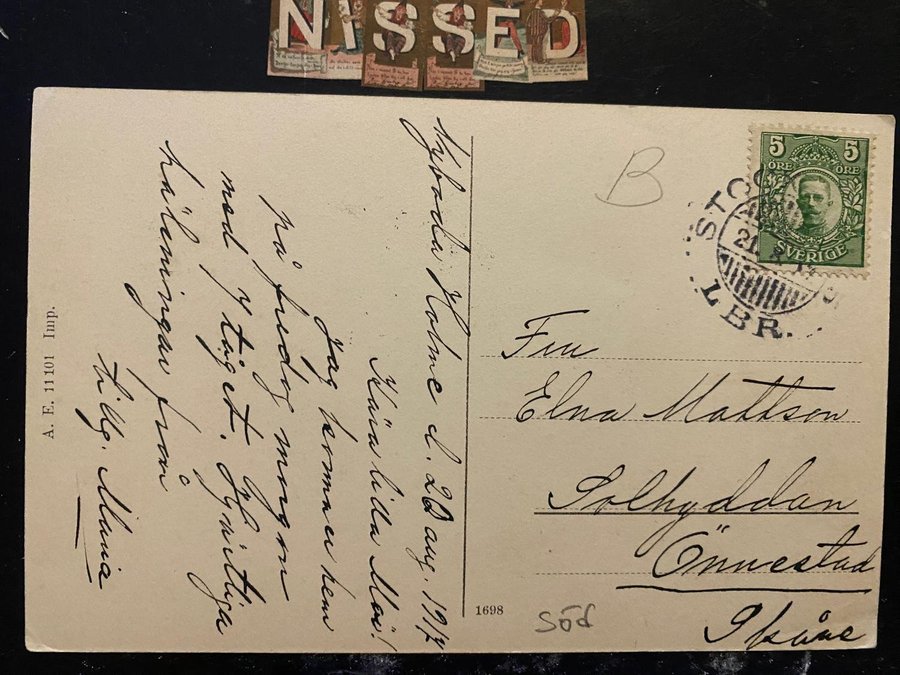 NISSED
Hyboda Holme d. 20 aug. 1917
Kära lilla Mos!
Jag kommer hem
på fredag morgon
med 7 tåget. Hjärtliga
hälsningar från
tillg. Maria
A. E. 11101 Imp.
1698
B
5 5
ÖRE ÖRE
SVERIGE
21
LBR.
Fru
Elna Mattson
Solhyddan
Önnestad
Skåne
söd